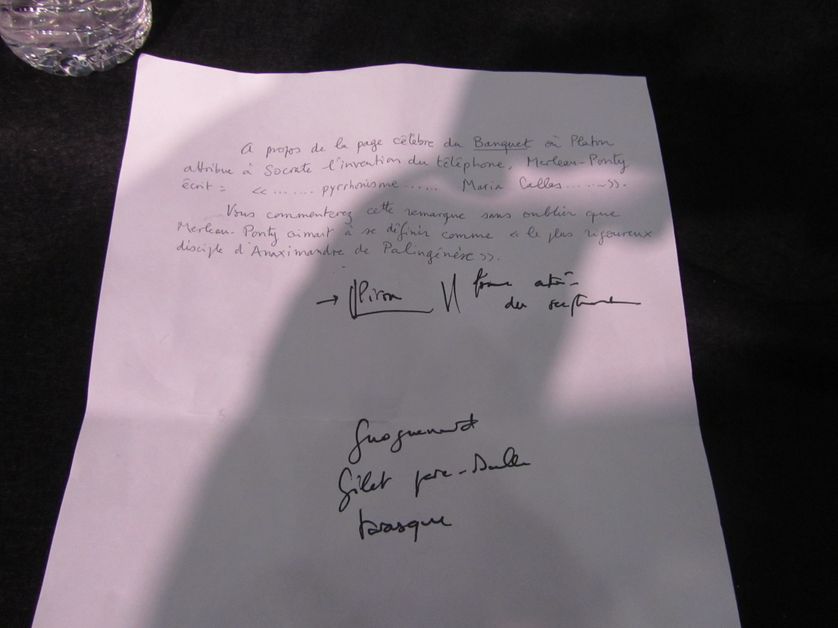 A propos de la page célèbre du Banquet où Platon
attribue à Socrate l'invention du téléphone, Merleau-Ponty
écrit : « ....... pyrrhonisme ...... Maria Callas ...... ».
Vous commenterez cette remarque sans oublier que
Merleau-Ponty aimait à se définir comme « le plus rigoureux
disciple d'Anaximandre de Palingénèse ».
→ Piron || forme
du
Gilet pare-balle